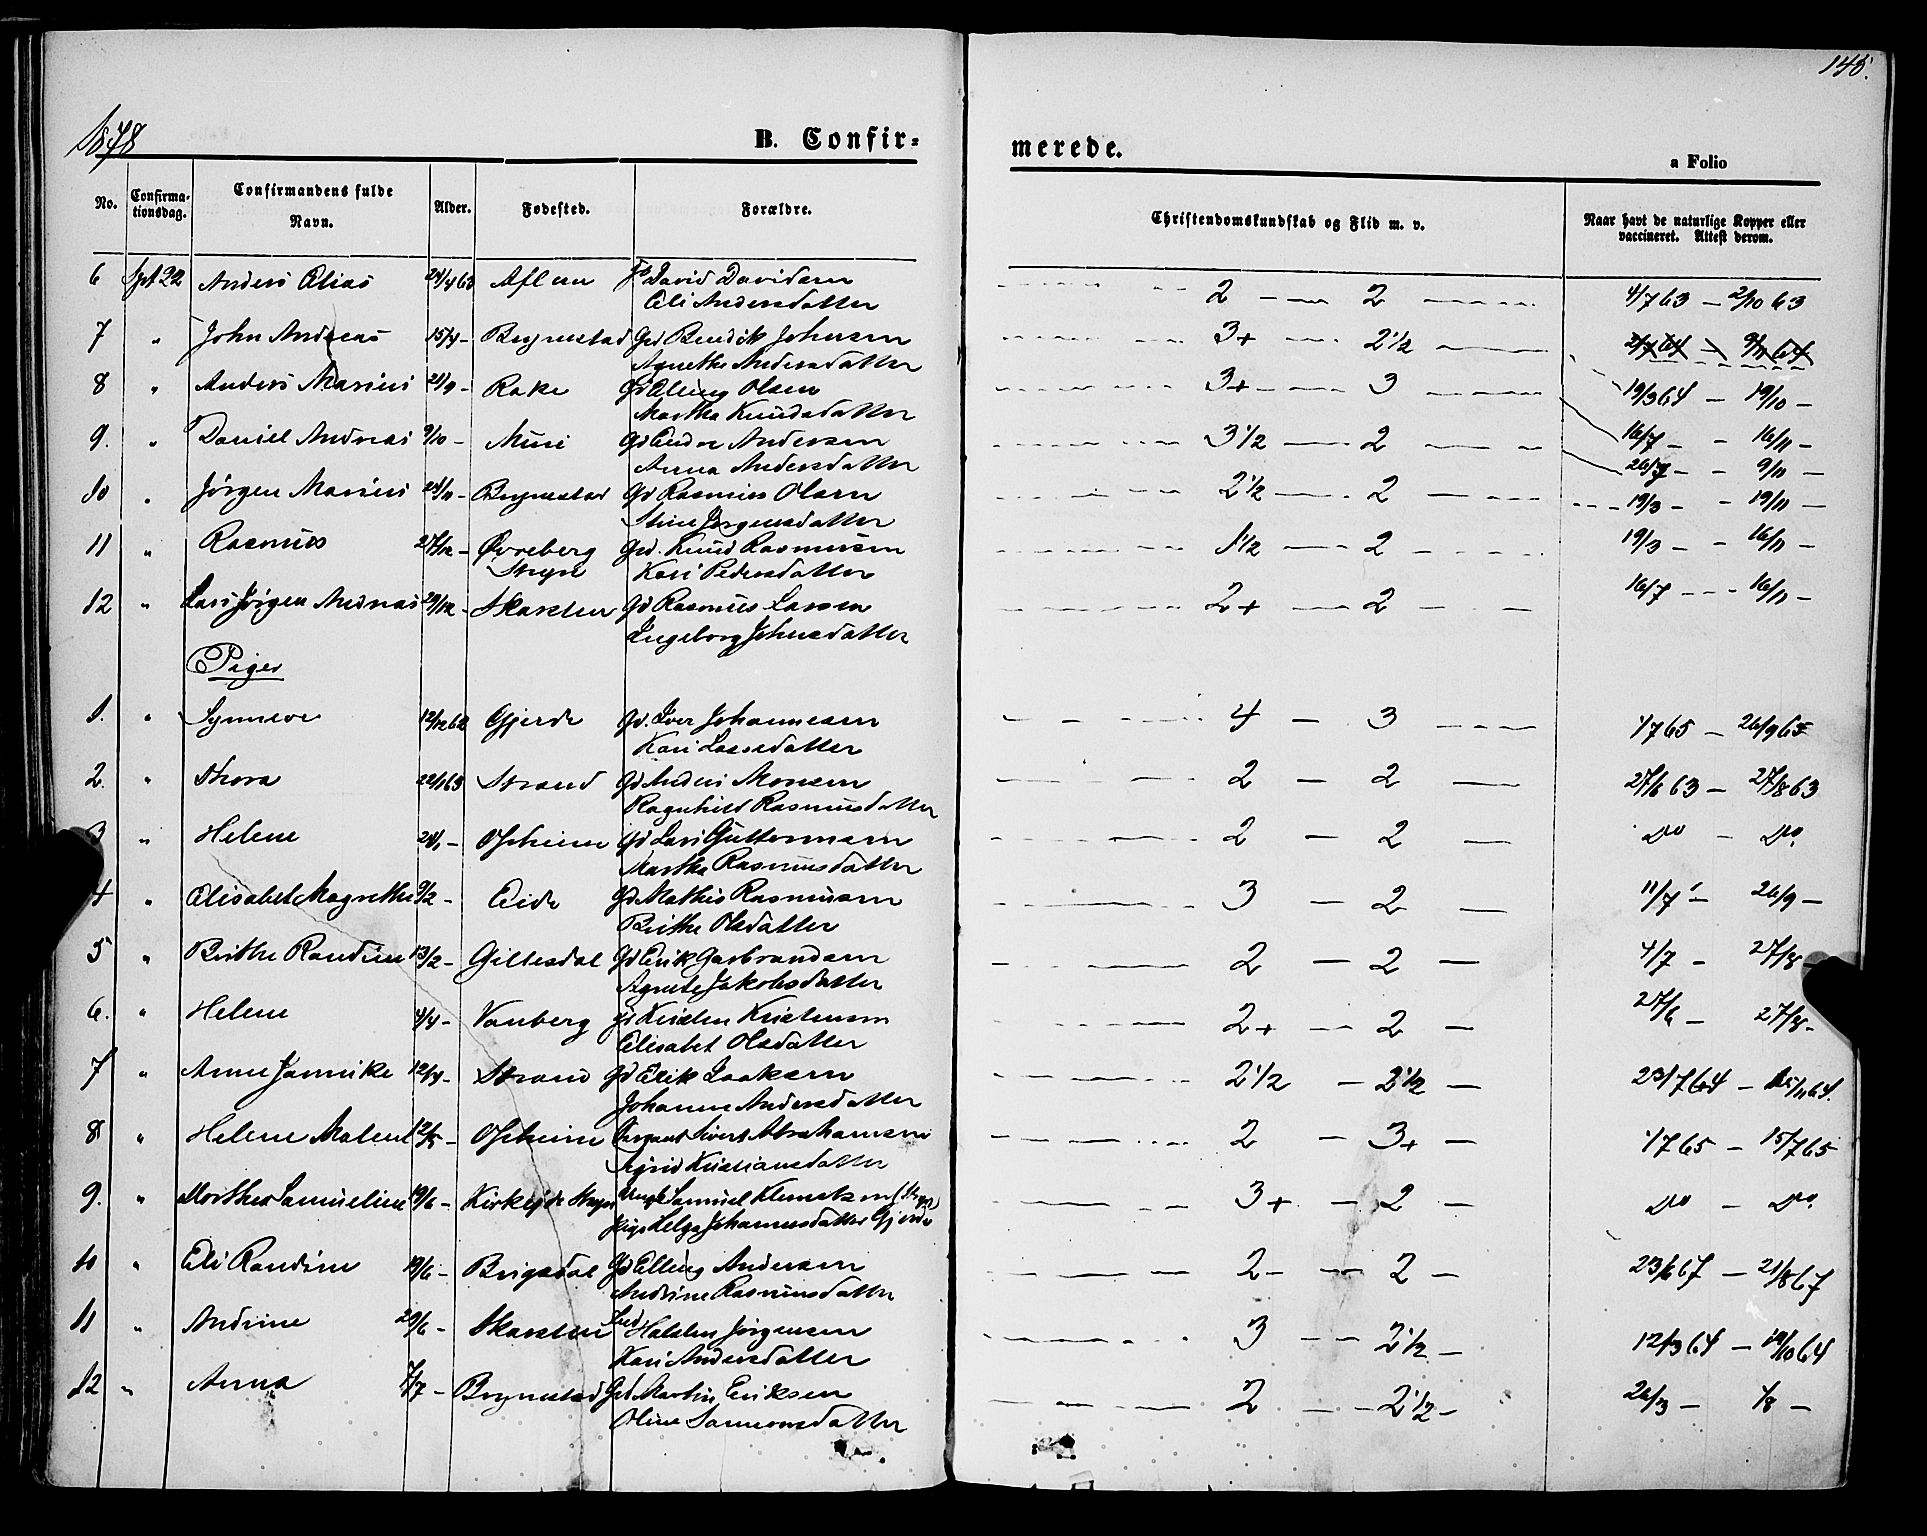 148.
1878
B. Confir=
merede.
a Folio
No.
Confirma-
tionsdag.
Confirmandens fulde
Navn.
Alder.
Fødested.
Forældre.
Christendomskundskab og Flid m. v.
Naar havt de naturlige Kopper eller
vaccineret. Attest derom.
6 Spt 22 Anders Elias 24/4 63 David Davidsen 2 — 2 4/7 63 — 2/10 63
Eli Andersdatter
7 " John Andreas 15/4 - Brynestad Gd Bendik Johnsen 3+ — 2 1/2
Agnethe Andersdatter
8 " Anders Marius 21/9 - Rake Gd Elling Olsen 3+ — 3 19/3 64 — 19/10 —
Martha Knudsdatter
9. " Daniel Andreas 9/10 - Muri Gd Endre Andersen 3 1/2 — 2 16/7 — - 16/11 —
Anna Andersdatter
26/7 — - 9/11 —
10 " Jørgen Marius 24/11 - Brynestad Gd Rasmus Olsen 2 1/2 — 2 19/3 — - 19/11 —
Stine Jørgensdatter
11 " Rasmus 27/12 - Øvreberg Gd. Knud Rasmussen 1 1/2 — 2 19/3 — - 16/11 —
Stryn Kari Pedersdatter
12 " Lars Jørgen Andreas 29/12 - Skarsten Gd Rasmus Larsen 2+ — 2 16/7 - - - 16/11 —
Ingeborg Johnsdatter
Piger
1. " Synneve 12/12 62 Gjerde Gd. Iver Johannesen 4 — 3 1/7 65 — 26/9 65
Kari Larsdatter
2. " Thora 22/1 63 Strand Gd Anders Monsen 2 — 2 27/6 63 — 27/8 63
Ragnhild Rasmusdatter
3 " Helene 24/1 - Opheim Gd Lars Guttormsen 2 — 2 Do — Do.
Martha Rasmusdatter
4 " Elisabet Magrethe 9/2 - Eide Gd Mathis Rasmussen 3 — 2 11/7 — 26/9 —
Brithe Olsdatter
5 " Brithe Randine 13/2 - Gittesdal Gd Erik Garbrandsen 2 — 2 — 4/7 — 27/8 —
Agnete Jakobsdatter
6. " Helene 4/4 - Vanberg Gd Kristen Kristensen 2+ — 2 — 27/6 — 27/8 -
Elisabet Olsdatter
7 " Anne Jannike 12/4 - Strand Gd Erik Isaksen 2 1/2 — 2 1/2 — 23/7 64 — 15/11 64.
Johanne Andersdatter
8 " Helene Malene 12/5 - Opheim Sergeant Sivert Abrahamsen 2 — 3+ — 1/7 65 — 15/7 65
Sigrid Kristiansdatter
9. " Dorthea Samueline 19/6 - Kirkeide Stryn Ungk Samuel Klemetsen (Stryn) 3+ — 2 — Do — Do.
Pige Helga Johannesdatter Gjerde
10 " Eli Randine 19/6 - Brigsdal Gd Elling Andersen 2 - — 2 — 23/6 67 — 21/8 67
Andrine Rasmusdatter
11 " Andrine 29/6 - Skarsten Ind Halsten Jørgensen 3 — 2 1/2 — 12/3 64 — 19/10 64
Kari Andersdatter
12 " Anna 7/7 - Brynestad Gd Martin Eriksen 2 — 2 1/2 - 26/3 — 1/8 —
Oline Samsonsdatter